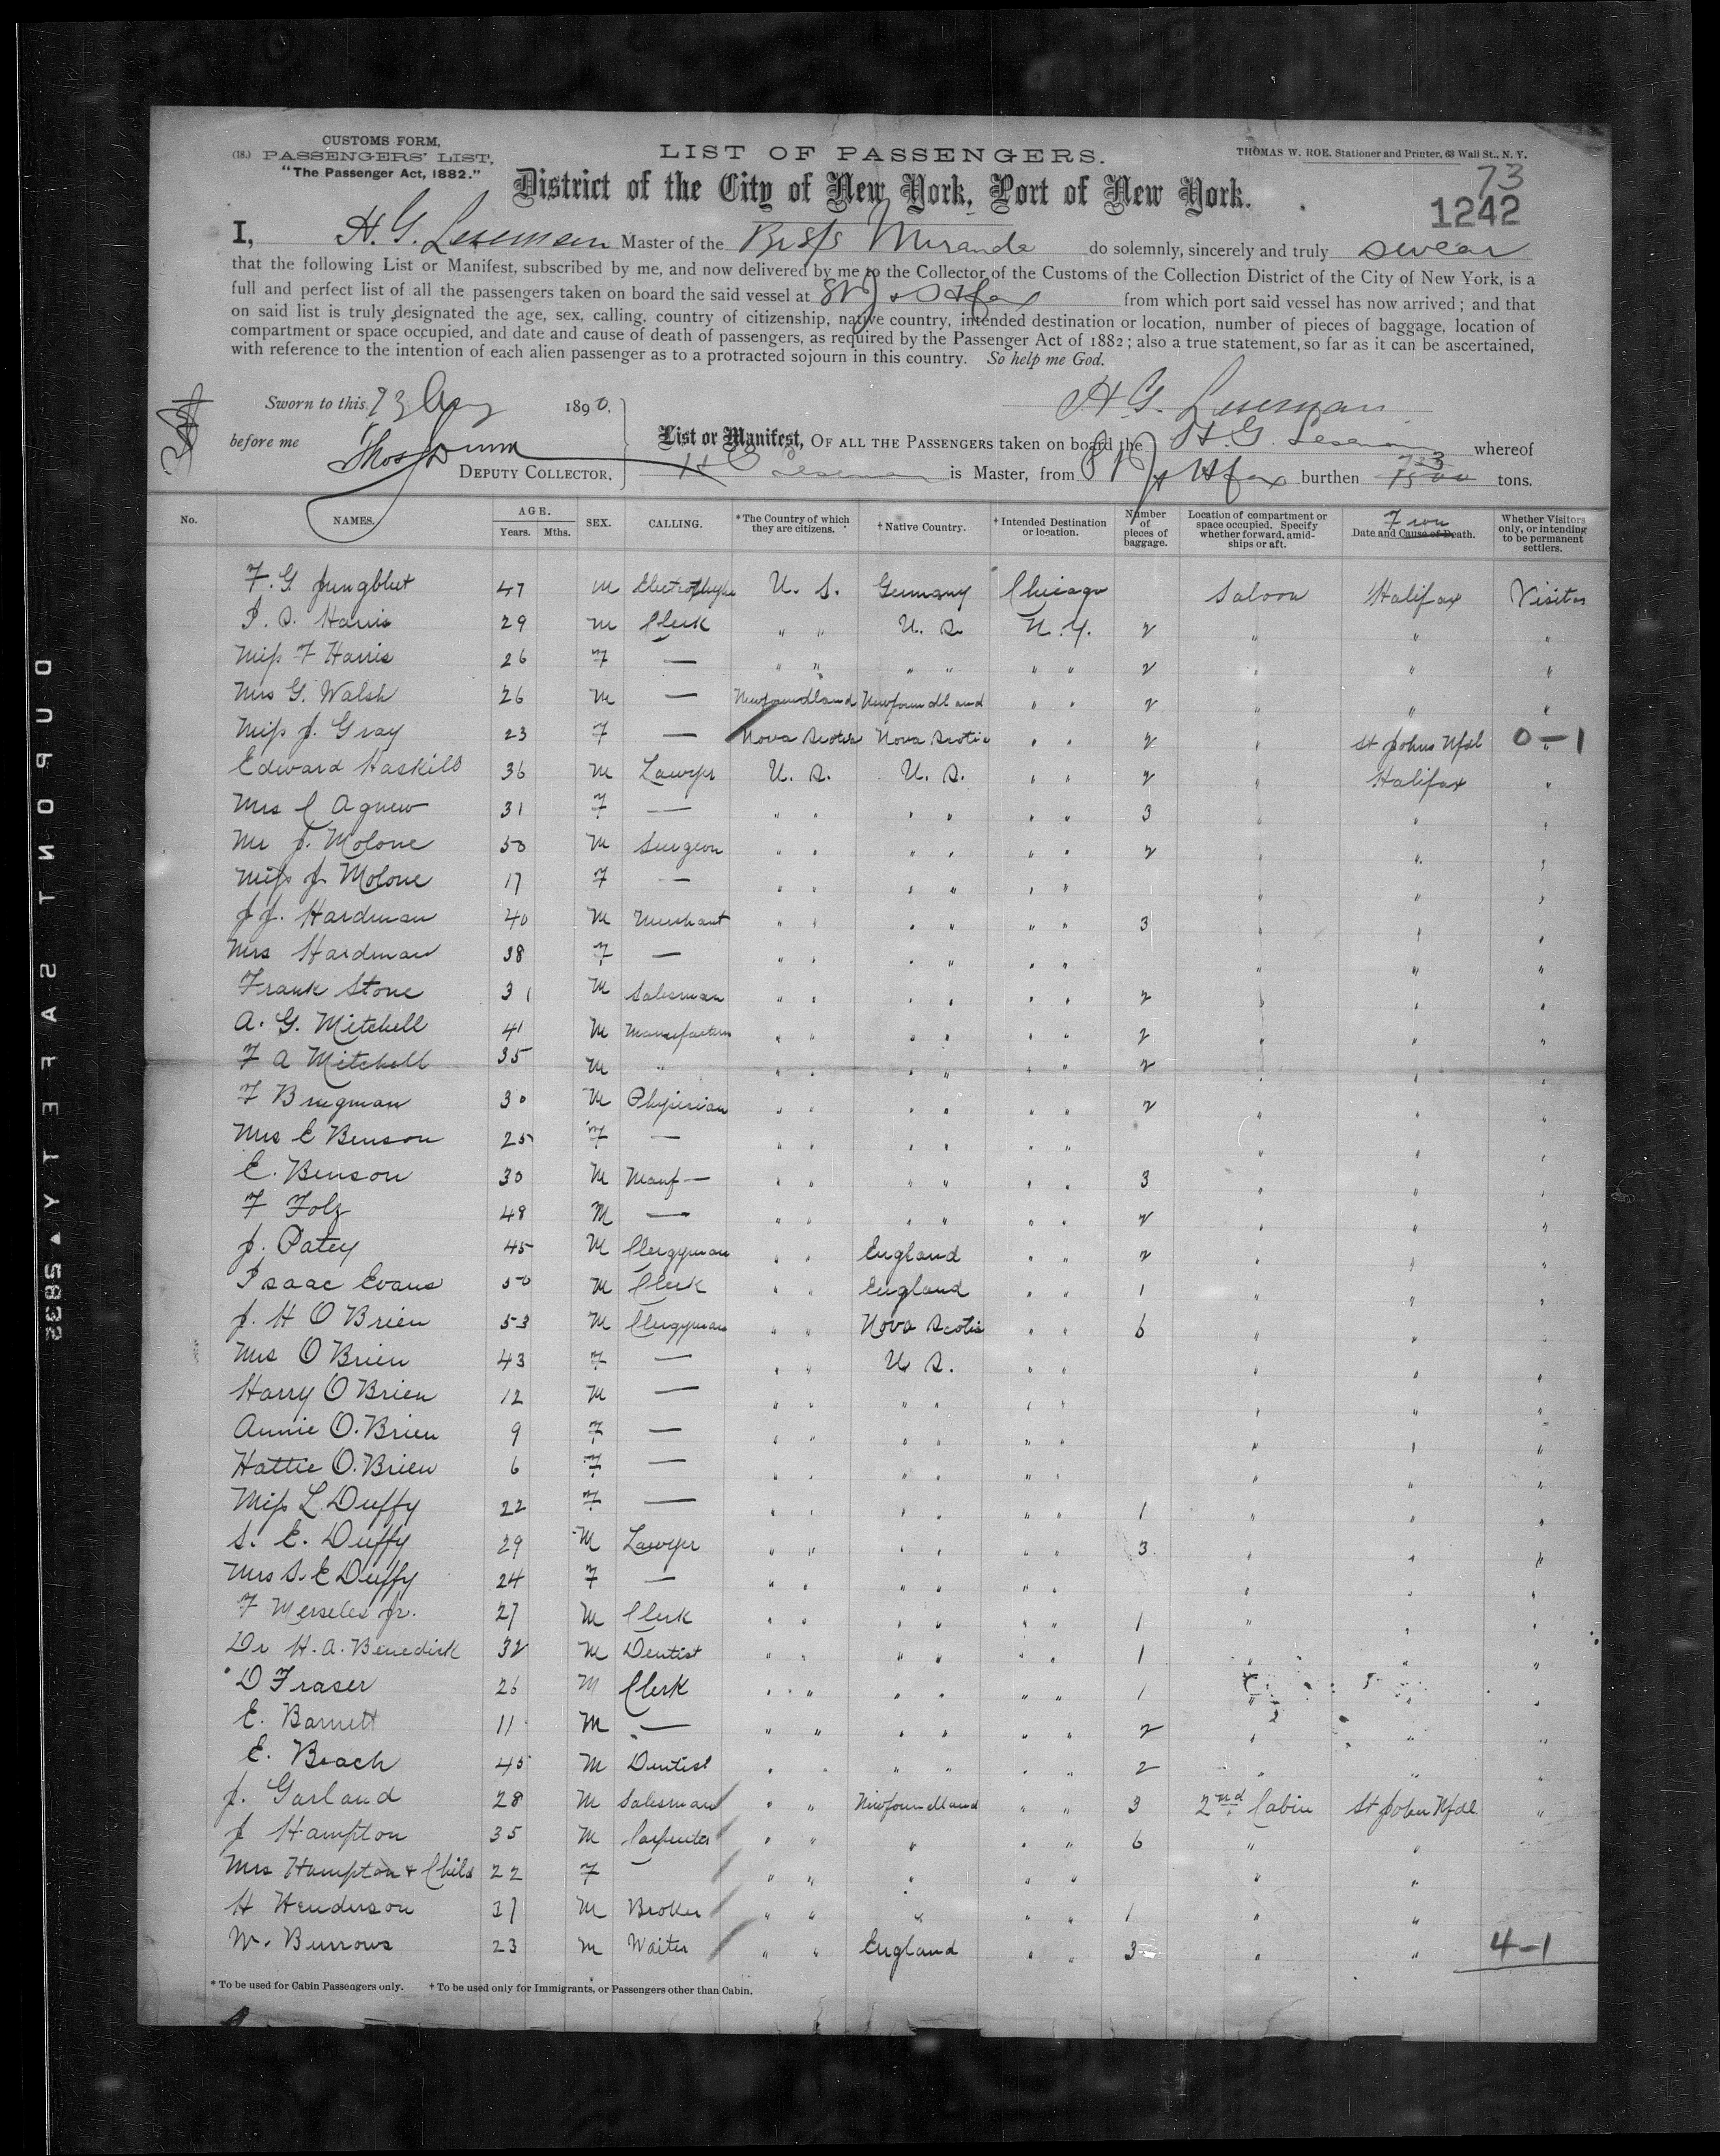 CUSTOMS FORM,
(18.) PASSENGERS' LIST,
"The Passenger Act, 1882."
LIST OF PASSENGERS.
THOMAS W. ROE, Stationer and Printer, 63 Wall St., N. Y.
District of the City of New York, Port of New York.
73
1242
I, H. G. Leseman Master of the Br S/S Miranda do solemnly, sincerely and truly swear
that the following List or Manifest, subscribed by me, and now delivered by me to the Collector of the Customs of the Collection District of the City of New York, is a
full and perfect list of all the passengers taken on board the said vessel at from which port said vessel has now arrived; and that
on said list is truly designated the age, sex, calling, country of citizenship, native country, intended destination or location, number of pieces of baggage, location of
compartment or space occupied, and date and cause of death of passengers, as required by the Passenger Act of 1882; also a true statement, so far as it can be ascertained,
with reference to the intention of each alien passenger as to a protracted sojourn in this country. So help me God.
Sworn to this 1890. H G. Leseman
before me Thos Dunn List or Manifest, OF ALL THE PASSENGERS taken on board the H. G. Leseman whereof
DEPUTY COLLECTOR. H G Leseman is Master, from burthen 1500 tons.
No. NAMES. AGE. Years. Mths. SEX. CALLING. *The Country of which they are citizens. †Native Country. †Intended Destination or location. Number of pieces of baggage. Location of compartment or space occupied. Specify whether forward, amidships or aft. From Date and Cause of Death. Whether Visitors only, or intending to be permanent settlers.
F. G. Jungblut 47 M U. S. Germany Chicago Saloon Halifax Visitor
29 M Clerk " " U. S. N. Y. 2 " " "
Miss F Harris 26 F — " " " " " " 2 " " "
Mrs G. Walsh 26 M — Newfoundland Newfoundland " " 2 " " "
Miss J. Gray 23 F — Nova Scotia Nova Scotia " " 2 " St Johns Nfdl 0-1 "
Edward Haskills 36 M Lawyer U. S. U. S. " " 2 " Halifax "
Mrs C Agnew 31 F — " " " " " " 3 " " "
Mr J. Molone 50 M Surgeon " " " " " " 2 " " "
Miss J. Molone 17 F — " " " " " " " " "
J J. Hardman 40 M Merchant " " " " " " 3 " " "
Mrs Hardman 38 F — " " " " " " " " "
Frank Stone 31 M Salesman " " " " " " 2 " " "
A. G. Mitchell 41 M Manufacturer " " " " " " 2 " " "
F A Mitchell 35 M " " " " " " " 2 " " "
F Brugman 30 M Physician " " " " " " 2 " " "
Mrs E Benson 25 F — " " " " " " " " "
E. Benson 30 M Manf — " " " " " " 3 " " "
F Folz 48 M — " " " " " " 2 " " "
J. Patey 45 M Clergyman " " England " " 2 " " "
Isaac Evans 50 M Clerk " " England " " 1 " " "
J. H O Brien 53 M Clergyman " " Nova Scotia " " 6 " " "
Mrs O Brien 43 F — " " U S. " " " " "
Harry O Brien 12 M — " " " " " " " " "
Annie O. Brien 9 F — " " " " " " " " "
Hattie O. Brien 6 F — " " " " " " " " "
Miss L. Duffy 22 F — " " " " " " 1 " " "
S. E. Duffy 29 M Lawyer " " " " " " 3 " " "
Mrs S. E Duffy 24 F — " " " " " " " " "
F Merseles Jr. 27 M Clerk " " " " " " 1 " " "
Dr H. A. Benedick 32 M Dentist " " " " " " 1 " " "
D Fraser 26 M Clerk " " " " " " 1 " " "
E. Barnett 11 M — " " " " " " 2 " " "
E. Beach 45 M Dentist " " " " " " 2 " " "
J. Garland 28 M Salesman " " Newfoundland " " 3 2nd Cabin St John Nfdl "
J Hampton 35 M Carpenter " " " " " 6 " "
Mrs Hampton & Child 22 F — " " " " " " "
H Henderson M Broker " " " " " 1 " "
W. Burrows 23 M Waiter " " England " " 3 " " 4-1
* To be used for Cabin Passengers only. † To be used only for Immigrants, or Passengers other than Cabin.
DUPONT SAFETY ▲ 5833